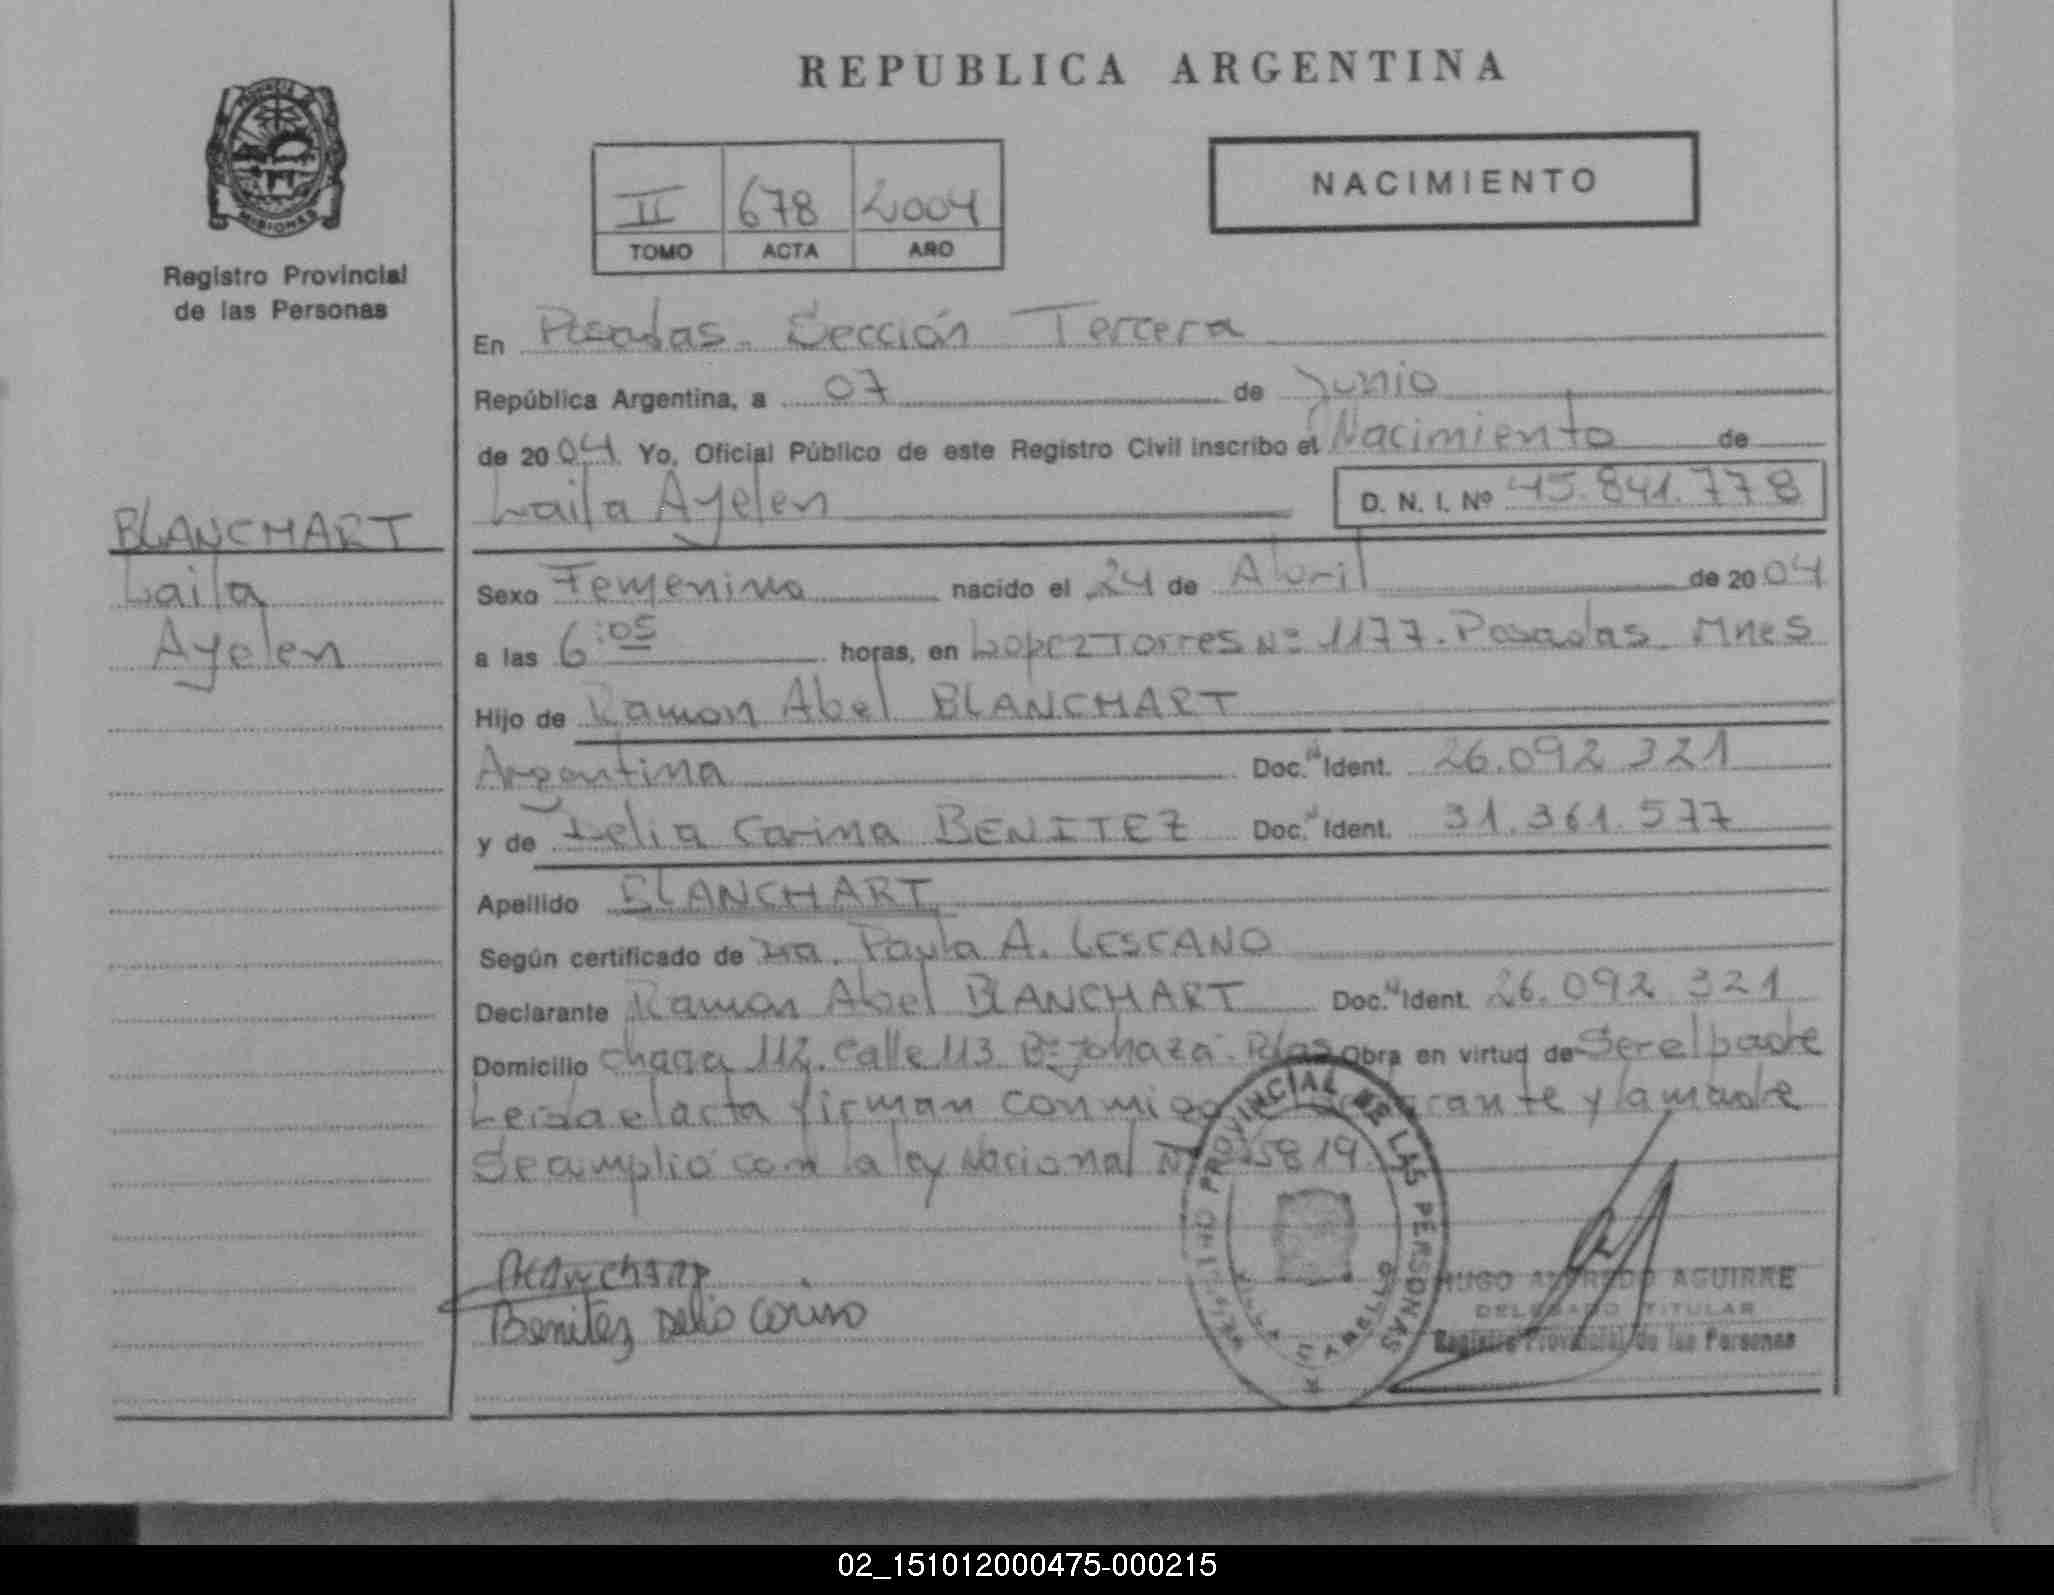 REPUBLICA ARGENTINA
PROVINCIA DE
MISIONES
Registro Provincial
de las Personas
II 678 2004
TOMO ACTA AÑO
NACIMIENTO
En Posadas. Sección Tercera
República Argentina, a 07 de Junio
de 2004 Yo, Oficial Público de este Registro Civil inscribo el Nacimiento de
Laila Ayelen D. N. I. Nº 45.841.778
BLANCHART
Laila
Ayelen
Sexo Femenino nacido el 24 de Abril de 2004
a las 6:05 horas, en Lopez Torres Nº 1177. Posadas. Mnes
Hijo de Ramon Abel BLANCHART
Argentina Doc. Ident. 26.092.321
y de Delia Carina BENITEZ Doc. Ident. 31.361.577
Apellido BLANCHART
Según certificado de Dra. Paula A. LESCANO
Declarante Ramon Abel BLANCHART Doc. Ident. 26.092.321
Domicilio chacra 112. Calle 113 Bº Pdas Obra en virtud de Ser el padre
Leida el acta firman conmigo y la madre
Se amplio con la ley Nacional 5819.
PROVINCIAL DE LAS PERSONAS
Blanchart
Benitez Delia Carina
HUGO ALFREDO AGUIRRE
DELEGADO TITULAR
Registro Provincial de las Personas
02_151012000475-000215